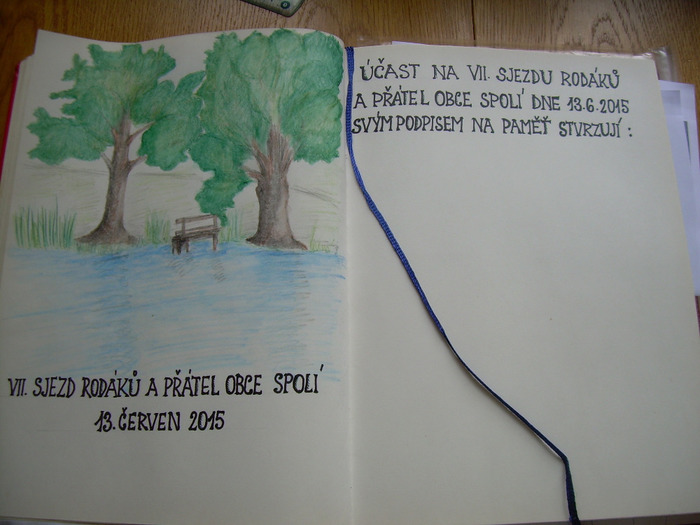 VII. SJEZD RODÁKŮ A PŘÁTEL OBCE SPOLÍ
13. ČERVEN 2015
ÚČAST NA VII. SJEZDU RODÁKŮ
A PŘÁTEL OBCE SPOLÍ DNE 13.6.2015
SVÝM PODPISEM NA PAMĚŤ STVRZUJÍ :